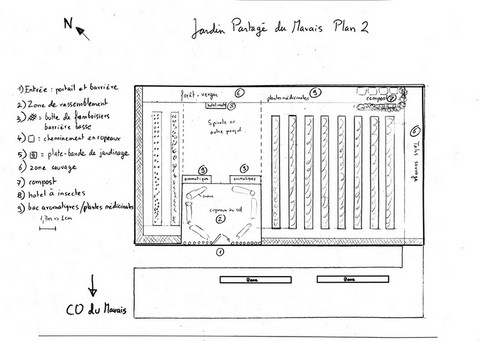 Jardin Partagé du Marais Plan 2
N
1) Entrée : portail et barrière
2) Zone de rassemblement
3) = butte de framboisiers
barrière basse
4) = cheminement en copeaux
5) = plate-bande de jardinage
6) zone sauvage
7) compost
8) hotel à insectes
9) bac aromatiques/plantes médicinales
1,7m = 1cm
forêt-verger
6
9
plantes médicinales
compost
7
8
Spirale ou
autre projet
6
9
9
aromatique
aromatiques
2
copeaux au sol
1
CO du Marais